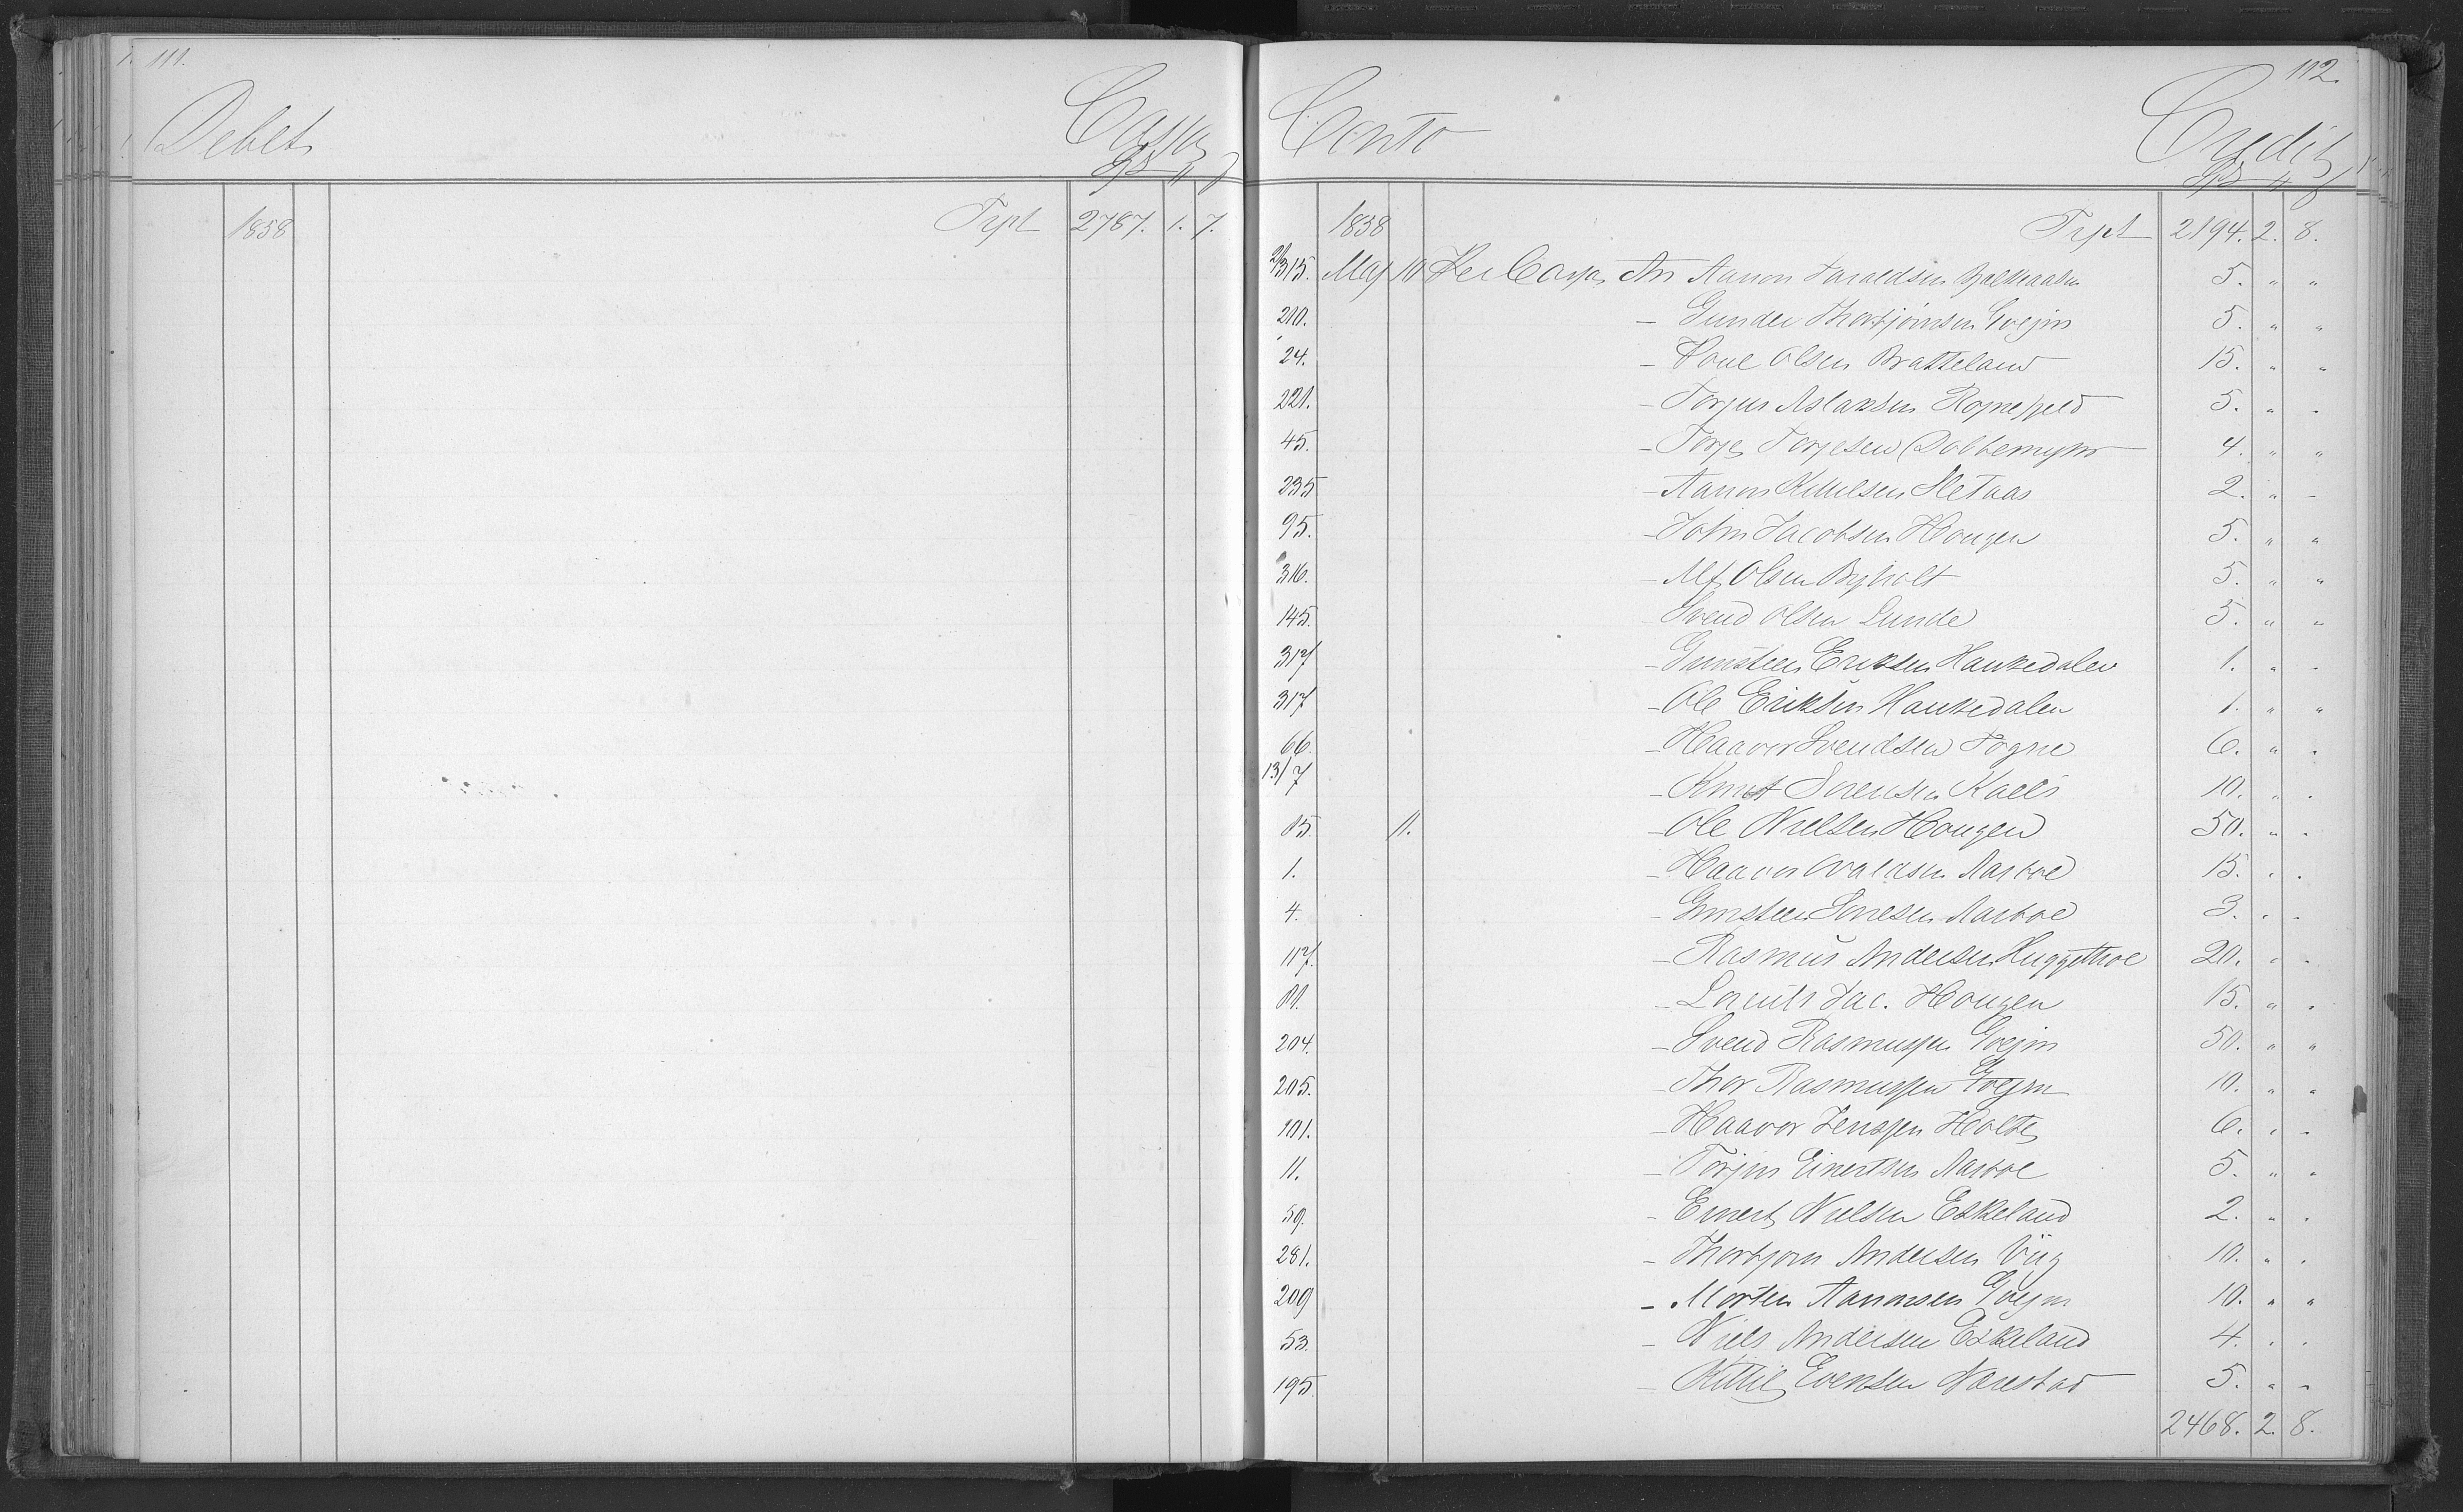 111.
Debet Cassa
1858 Trpt 2787. 1. 7.
112.
Conto Credit
1858 Trpt 2194. 2. 8.
315. Maj 10 Per Cassa An Aanon Taraldsen 5. " "
210. - Gunder Thorbjørnsen Evejm 5. " "
24. - Olsen Bratteland 15. " "
221. - Torjus Aslaksen 5. " "
45. - Torje Torjesen Dobbemyhr 4. " "
235 - Aanon Kittilsen Sletaas 2. " -
95. - John Jacobsen Hougen 5. " "
316. - Alf Olsen Byholt 5. " "
145. Svend Olsen Lunde 5. " "
317 - Gunsteen Eriksen Haukedalen 1. " -
317 - Ole Eriksen Haukedalen 1. " "
66. - Haavor Svendsen Togne 6. " "
13/7 - Knut Sorensen 10. " "
15 11. - Ole Nielsen Hougen 50. " "
1. - Haavor Ovaldsen Aasboe 15. " "
4. - Gunsteen Aasboe 3. " -
117. - Rasmus Andersen Huggethoe 20. " -
- Lorents Jac. Hougen 15. " "
204. - Svend Rasmussen Evejm 50. " "
205. - Thor Rasmussen Evejm 10. " "
101. - Haavor Jenssen Holte 6. " -
11. - Torjus Einertsen Aasboe 5. " "
59. - Einert Nielsen Eskeland 2. " "
281. - Thorbjorn Andersen Viig 10. " "
209 - Morten Aanonsen Evejm 10. " "
53. - Niels Andersen Eskeland 4. " "
195. - Kittil Evensen Narestad 5. " -
2468. 2. 8.